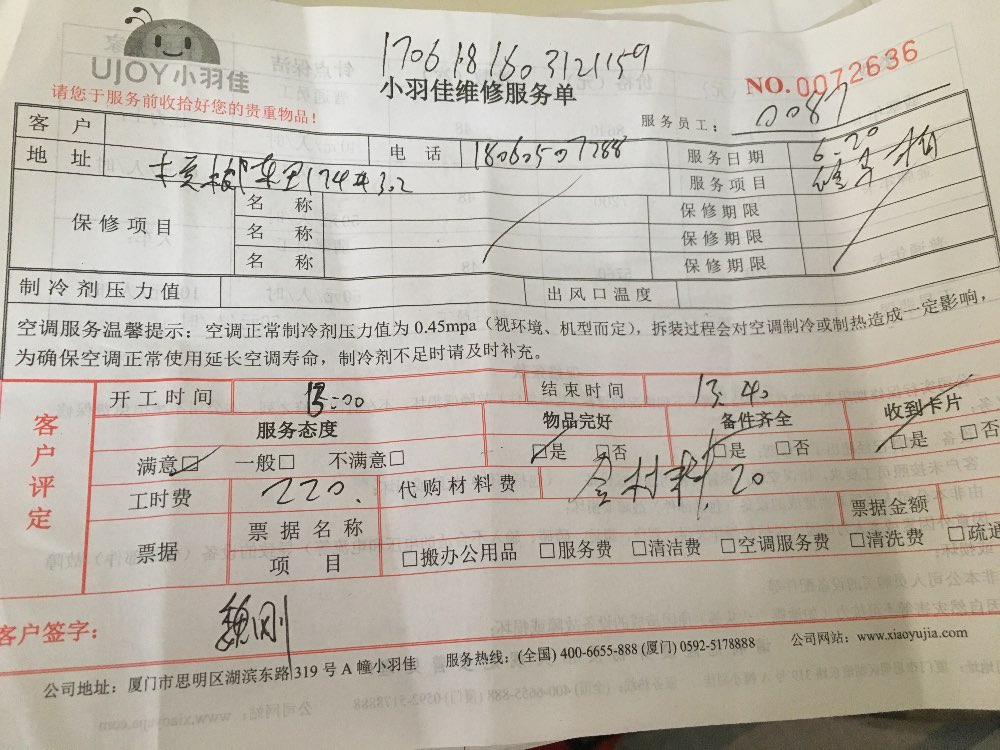 UJOY小羽佳
1706181603121159
小羽佳维修服务单
NO.0072636
请您于服务前收拾好您的贵重物品!
服务员工: 0087
客户
地址 174#302 电话 18060507288 服务日期 6.20
服务项目
保修项目 名称 保修期限
名称 保修期限
名称 保修期限
制冷剂压力值 出风口温度
空调服务温馨提示:空调正常制冷剂压力值为 0.45mpa(视环境、机型而定),拆装过程会对空调制冷或制热造成一定影响,
为确保空调正常使用延长空调寿命,制冷剂不足时请及时补充。
客户评定
开工时间 13:00 结束时间 13.40
服务态度 物品完好 备件齐全 收到卡片
满意□ 一般□ 不满意□ □是 □否 □是 □否 □是 □否
工时费 220. 代购材料费 含材料.20
票据 票据名称 票据金额
项目 □搬办公用品 □服务费 □清洁费 □空调服务费 □清洗费 □疏通
客户签字: 魏刚
公司地址:厦门市思明区湖滨东路319号A幢小羽佳 服务热线:(全国) 400-6655-888 (厦门) 0592-5178888 公司网站:www.xiaoyujia.com